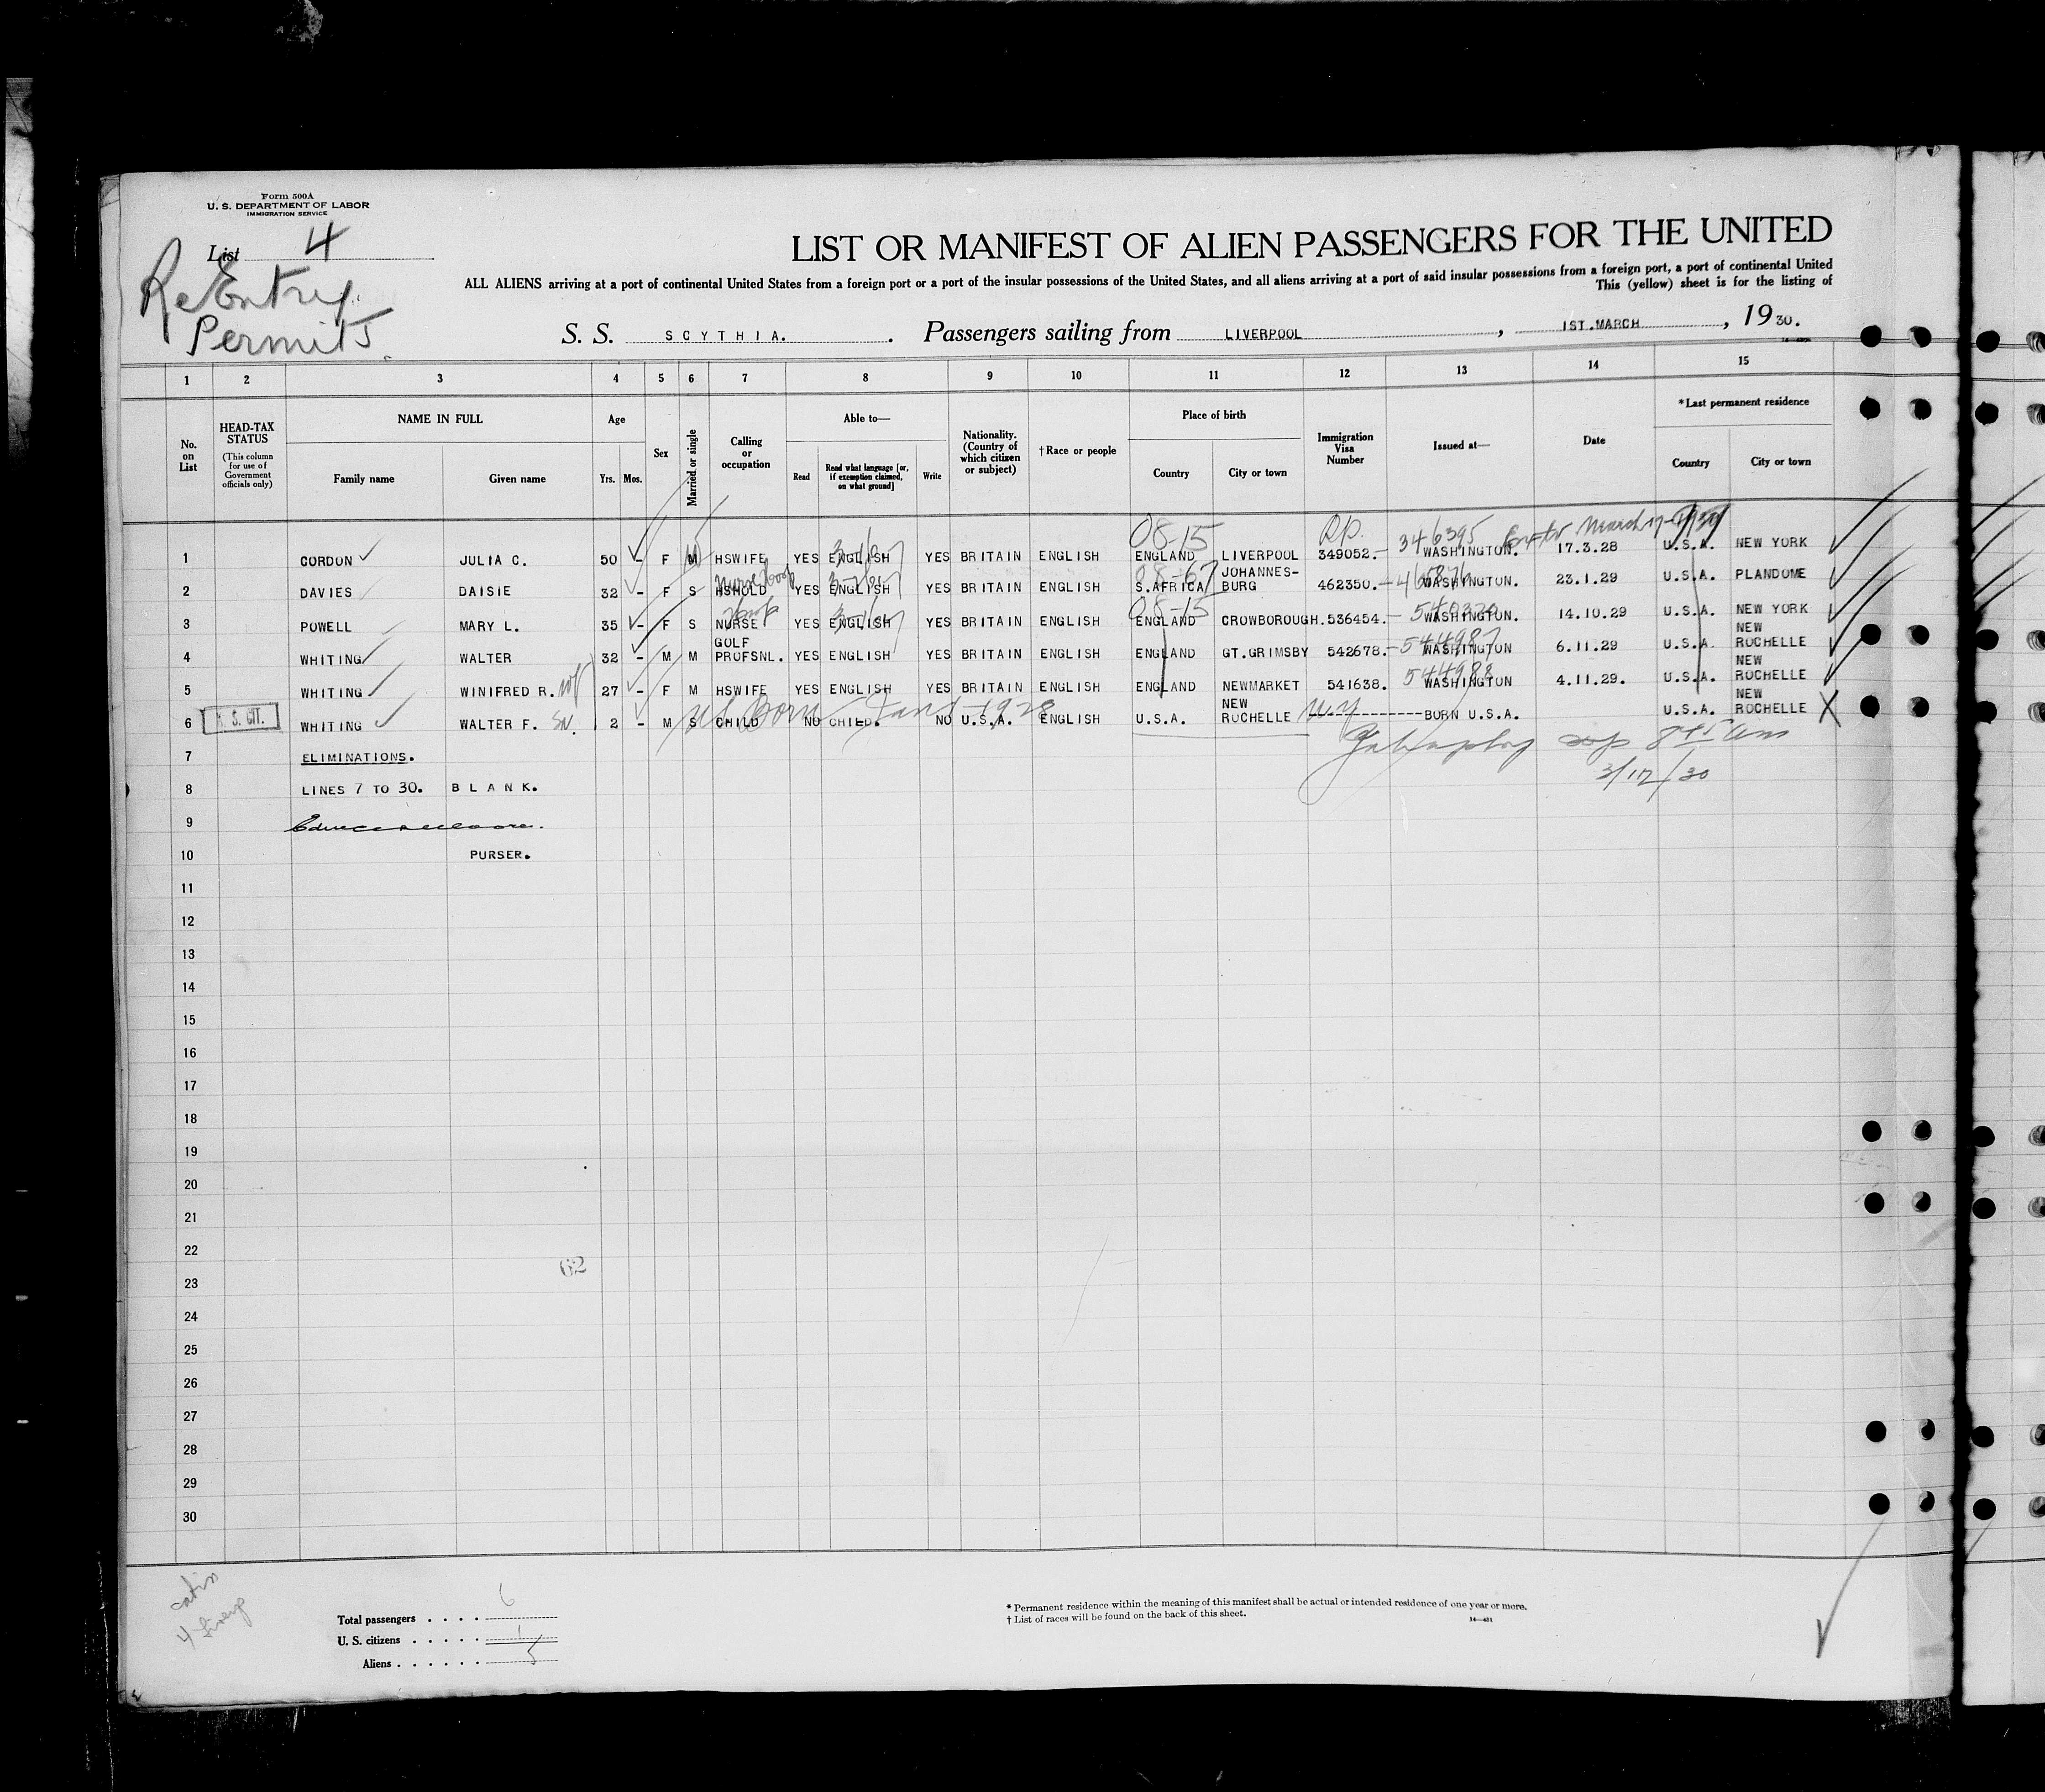 Form 500A
U. S. DEPARTMENT OF LABOR
IMMIGRATION SERVICE
List 4
ReEntry
Permits
LIST OR MANIFEST OF ALIEN PASSENGERS FOR THE UNITED
ALL ALIENS arriving at a port of continental United States from a foreign port or a port of the insular possessions of the United States, and all aliens arriving at a port of said insular possessions from a foreign port, a port of continental United
This (yellow) sheet is for the listing of
S. S. SCYTHIA. . Passengers sailing from LIVERPOOL , 1ST.MARCH , 1930.
1 2 3 4 5 6 7 8 9 10 11 12 13 14 15
No. on List
HEAD-TAX STATUS (This column for use of Government officials only)
NAME IN FULL
Family name Given name
Age
Yrs. Mos.
Sex
Married or single
Calling or occupation
Able to—
Read Read what language [or, if exemption claimed, on what ground] Write
Nationality. (Country of which citizen or subject)
†Race or people
Place of birth
Country City or town
Immigration Visa Number
Issued at—
Date
*Last permanent residence
Country City or town
08-15 R.P. 346395
1 GORDON JULIA C. 50 - F M HSWIFE YES ENGLISH YES BRITAIN ENGLISH ENGLAND LIVERPOOL 349052. WASHINGTON. 17.3.28 U.S.A. NEW YORK
2 DAVIES DAISIE 32 - F S HSHOLD YES ENGLISH YES BRITAIN ENGLISH S.AFRICA JOHANNES-BURG 462350. WASHINGTON. 23.1.29 U.S.A. PLANDOME
08-15
3 POWELL MARY L. 35 - F S NURSE YES ENGLISH YES BRITAIN ENGLISH ENGLAND CROWBOROUGH. 536454. WASHINGTON. 14.10.29 U.S.A. NEW YORK
4 WHITING WALTER 32 - M M GOLF PROFSNL. YES ENGLISH YES BRITAIN ENGLISH ENGLAND GT.GRIMSBY 542678. 544987 WASHINGTON 6.11.29 U.S.A. NEW ROCHELLE
5 WHITING WINIFRED R. wf 27 - F M HSWIFE YES ENGLISH YES BRITAIN ENGLISH ENGLAND NEWMARKET 541638. 544988 WASHINGTON 4.11.29. U.S.A. NEW ROCHELLE
6 U. S. CIT. WHITING WALTER F. Sn. 2 - M S CHILD NO CHILD. NO U.S.A. ENGLISH U.S.A. NEW ROCHELLE NY ---------- BORN U.S.A. U.S.A. NEW ROCHELLE X
US Born Jan 1-1928
7 ELIMINATIONS.
3/12/30
8 LINES 7 TO 30. BLANK.
9
10 PURSER.
11
12
13
14
15
16
17
18
19
20
21
22
62
23
24
25
26
27
28
29
30
Total passengers . . . . 6
U. S. citizens . . . . . 1
Aliens . . . . . . 5
* Permanent residence within the meaning of this manifest shall be actual or intended residence of one year or more.
† List of races will be found on the back of this sheet.